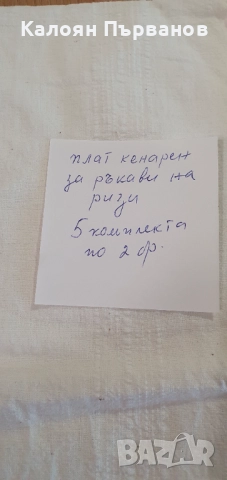 Калоян Първанов
плат кенарен
за ръкави на
ризи
5 комплекта
по 2 бр.
BAZAR
bazar.bg